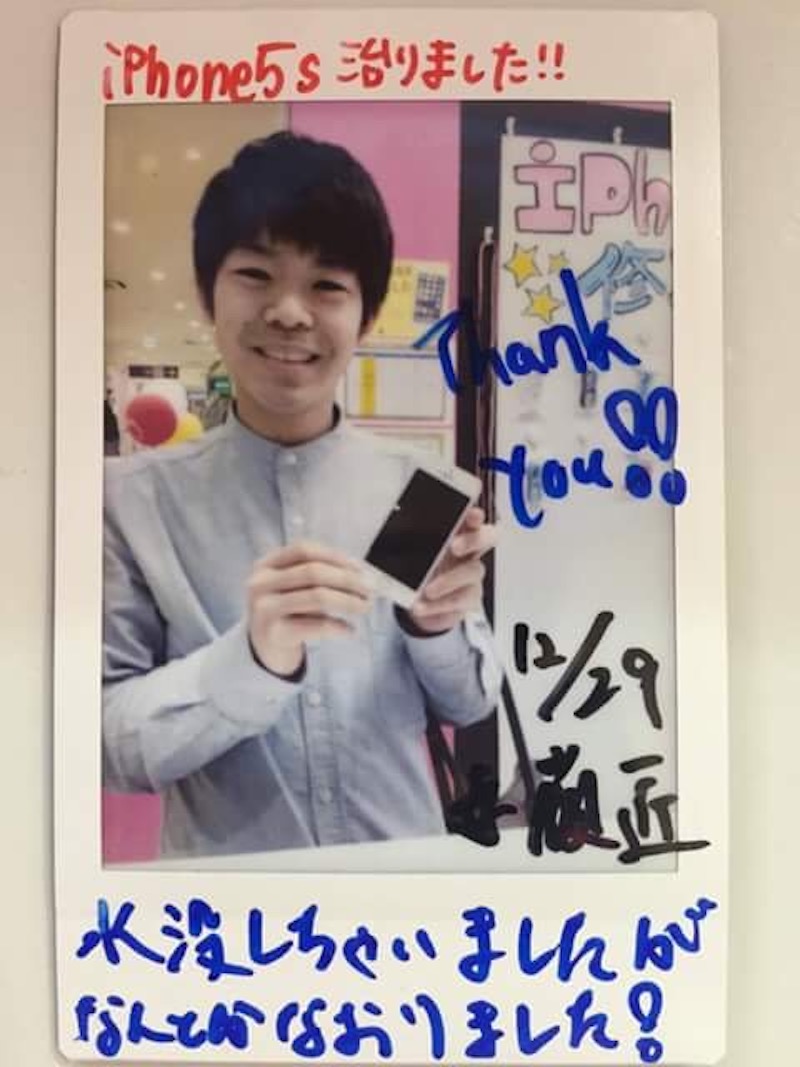 iPhone5s 治りました!!
iPh
修
Thank
you!!
12/29
水没しちゃいましたが
なんとかなおりました!